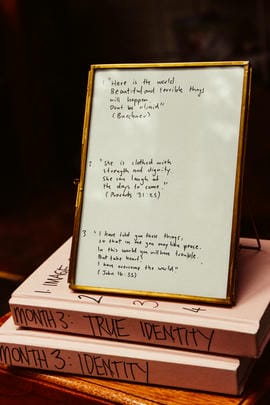 1 "Here is the world
Beautiful and terrible things
will happen
Dont be afraid"
(Buechner)
2 "She is clothed with
strength and dignity
she can laugh at
the days to come."
(Proverbs 31:25)
3 "I have told you these things,
so that in me you may have peace.
In this world you will have trouble.
But take heart!
I have overcome the world"
(John 16:33)
1. IMAGE
2
3
4
MONTH 3: TRUE IDENTITY
MONTH 3: IDENTITY